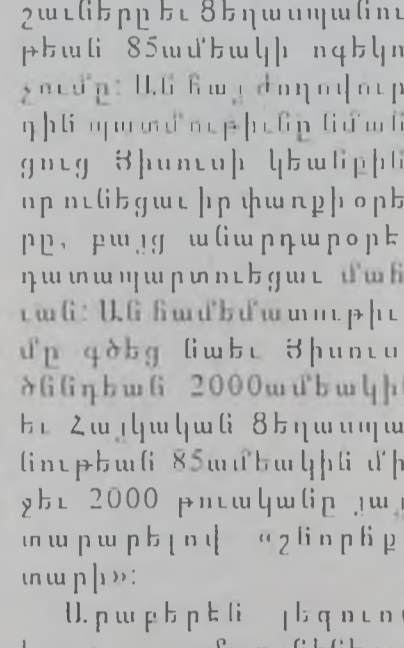 շաւները եւ Ցեղասպանու
թեան 85ամեակի ոգեկո
չումը: Ան հայ ժողովուր
դին պատմութիւնը նման
ցուց Յիսուսի կեանքին
որ ունեցաւ իր փառքի օրե
րը, բայց անարդարօրէ
դատապարտուեցաւ մահ
ւան: Ան համեմատութիւ
մը գծեց նաեւ Յիսուս
ծննդեան 2000ամեակին
եւ Հայկական Ցեղասպա
նութեան 85ամեակին մի
ջեւ 2000 թուականը յայ
տարարելով «շնորհք
տարի»:
Արաբերէն լեզուո